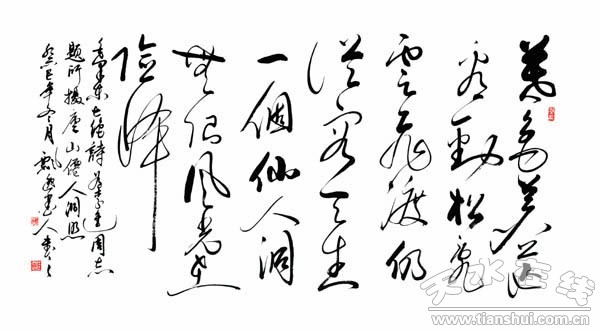 暮色蒼茫
看勁松亂
雲飛渡仍
從容天生
一個仙人洞
無限風光在
險峰
毛澤東七絕詩為李進同志
題所攝廬山僊人洞照
癸巳年冬月
天水在线
www.tianshui.com.cn